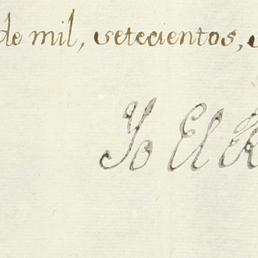 de mil, setecientos,
Yo El R